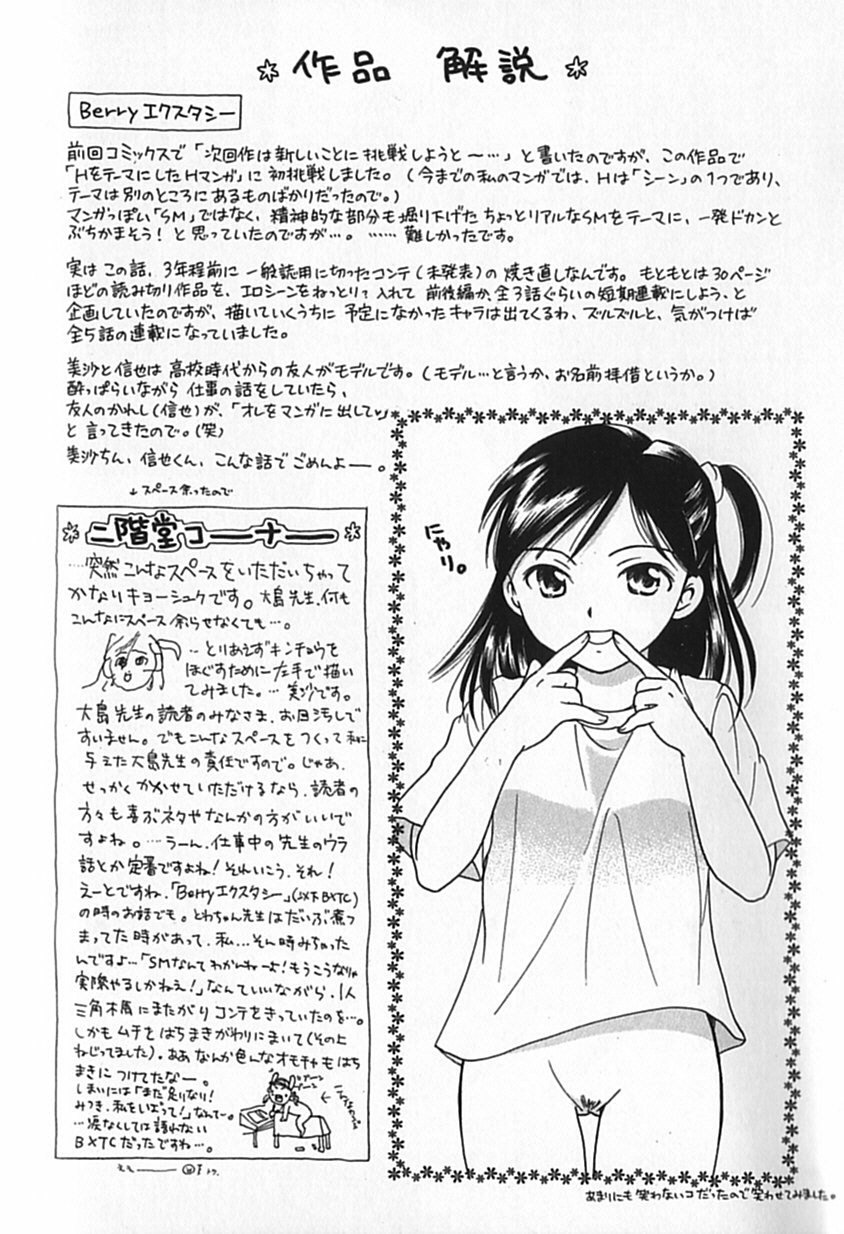 作品 解説
Berryエクスタシー
前回コミックスで「次回作は新しいことに挑戦しようと～…」と書いたのですが、この作品で
「Hをテーマにした Hマンガ」に初挑戦しました。(今までの私のマンガでは、Hは「シーン」の1つであり、
テーマは別のところにあるものばかりだったので。)
マンガっぽい「SM」ではなく、精神的な部分も堀り下げた ちょっとリアルなSMをテーマに、一発ドカンと
ぶちかまそう！と思っていたのですが…。……難しかったです。
実は この話、3年程前に 一般読用に切ったコンテ(未発表)の 焼き直しなんです。もともとは30ページ
ほどの読み切り作品を、エロシーンをねっとりって 入れて 前後編か、全3話ぐらいの短期連載にしよう、と
企画していたのですが、描いていくうちに 予定になかったキャラは出てくるわ、ズルズルと、気がつけば
全5話の連載になっていました。
美沙と信也は 高校時代からの友人がモデルです。(モデル…と言うか、お名前拝借というか。)
酔っぱらいながら 仕事の話をしていたら、
友人のかれし(信也)が、「オレをマンガに出してッ」
と言ってきたので。(笑)
美沙ちん、信也くん、こんな話で ごめんよー。
↓スペース余ったので
二階堂コーナー
…突然こんなスペースをいただいちゃって
かなりキョーシュクです。大島先生、何も
こんなにスペース 余らせなくても…。
…とりあえずキンチョウを
ほぐすために左手で描い
てみました。…美沙です。
大島先生の読者のみなさま、お目汚しで
すいません。でもこんなスペースをつくって私に
与えた大島先生の責任ですので。じゃあ、
せっかくかかせていただけるなら、読者の
方々も喜ぶネタやなんかの方がいいで
すよね。…うーん、仕事中の先生のウラ
話とか定番ですよね！それいこう、それ！
えーとですね、「Berryエクスタシー」(以下BXTC)
の時のお話でも。とわちゃん先生はだいぶ煮つ
まってた時があって、私…そん時みちゃった
んですよ…「SMなんてわかんねーよ！もうこうなりゃ
実際やるしかねえ！」なんていいながら、1人
三角木馬にまたがり コンテをきっていたのを…。
しかもムチをはちまきがわりにまいて(その上
ねじってました)、ああ なんか色んなオモチャもはち
まきに つけてたなー。
しまいには「まだ足りない！
みつき、私をしばって！」なんてー。
…涙なくしては語れない
BXTCだったですね…。
にやり。
あまりにも 笑わないコだったので 笑わせてみました。